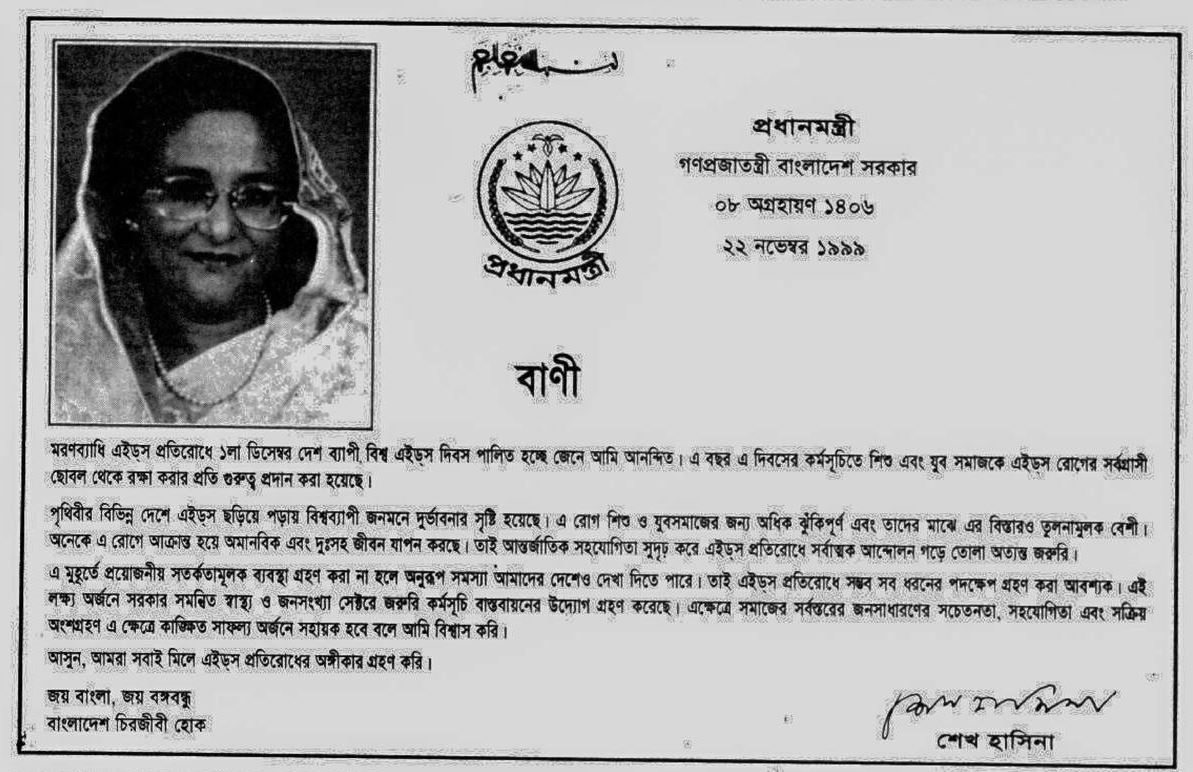 প্রধানমন্ত্রী
প্রধানমন্ত্রী
গণপ্রজাতন্ত্রী বাংলাদেশ সরকার
০৮ অগ্রহায়ণ ১৪০৬
২২ নভেম্বর ১৯৯৯
বাণী
মরণব্যাধি এইড্‌স প্রতিরোধে ১লা ডিসেম্বর দেশ ব্যাপী বিশ্ব এইড্‌স দিবস পালিত হচ্ছে জেনে আমি আনন্দিত। এ বছর এ দিবসের কর্মসূচিতে শিশু এবং যুব সমাজকে এইড্‌স রোগের সর্বগ্রাসী
ছোবল থেকে রক্ষা করার প্রতি গুরুত্ব প্রদান করা হয়েছে।
পৃথিবীর বিভিন্ন দেশে এইড্‌স ছড়িয়ে পড়ায় বিশ্বব্যাপী জনমনে দুর্ভাবনার সৃষ্টি হয়েছে। এ রোগ শিশু ও যুবসমাজের জন্য অধিক ঝুঁকিপূর্ণ এবং তাদের মাঝে এর বিস্তারও তুলনামূলক বেশী।
অনেকে এ রোগে আক্রান্ত হয়ে অমানবিক এবং দুঃসহ জীবন যাপন করছে। তাই আন্তর্জাতিক সহযোগিতা সুদৃঢ় করে এইড্‌স প্রতিরোধে সর্বাত্মক আন্দোলন গড়ে তোলা অত্যন্ত জরুরি।
এ মুহূর্তে প্রয়োজনীয় সতর্কতামূলক ব্যবস্থা গ্রহণ করা না হলে অনুরূপ সমস্যা আমাদের দেশেও দেখা দিতে পারে। তাই এইড্‌স প্রতিরোধে সম্ভব সব ধরনের পদক্ষেপ গ্রহণ করা আবশ্যক। এই
লক্ষ্য অর্জনে সরকার সমন্বিত স্বাস্থ্য ও জনসংখ্যা সেক্টরে জরুরি কর্মসূচি বাস্তবায়নের উদ্যোগ গ্রহণ করেছে। এক্ষেত্রে সমাজের সর্বস্তরের জনসাধারণের সচেতনতা, সহযোগিতা এবং সক্রিয়
অংশগ্রহণ এ ক্ষেত্রে কাঙ্ক্ষিত সাফল্য অর্জনে সহায়ক হবে বলে আমি বিশ্বাস করি।
আসুন, আমরা সবাই মিলে এইড্‌স প্রতিরোধের অঙ্গীকার গ্রহণ করি।
জয় বাংলা, জয় বঙ্গবন্ধু
বাংলাদেশ চিরজীবী হোক
শেখ হাসিনা
শেখ হাসিনা